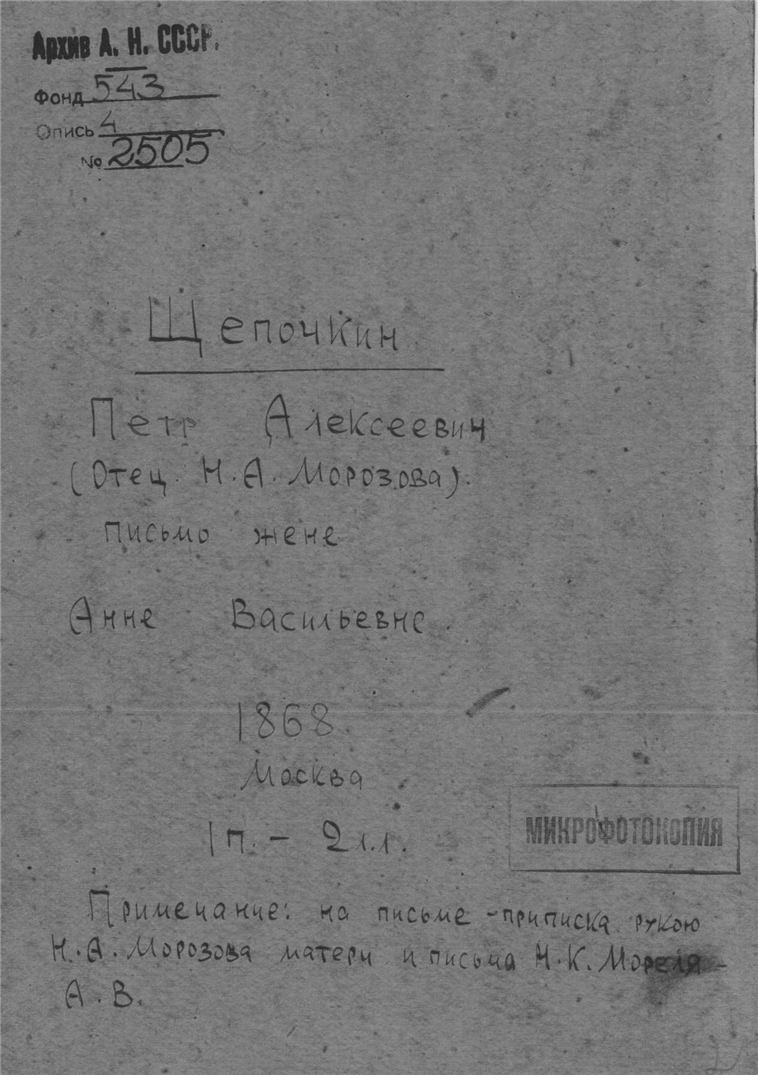 Архив А. Н. СССР.
Фонд 543
Опись 4
№ 2505
Щепочкин
Петр Алексеевич
(Отец Н.А. Морозова).
письмо жене
Анне Васильевне.
1868.
Москва
1 п. - 2 л.л.
МИКРОФОТОКОПИЯ
Примечание: на письме - приписка рукою
Н.А. Морозова матери и письма Н.К. Мореля -
А.В.